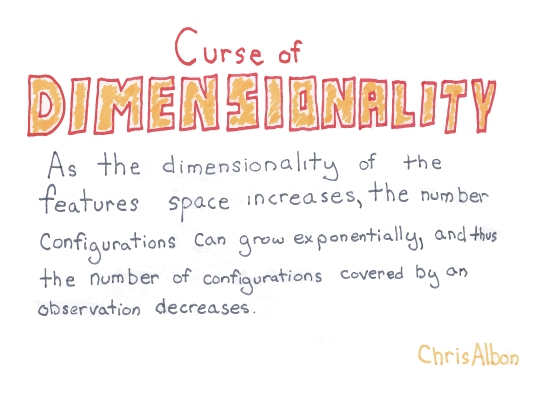 Curse of
DIMENSIONALITY
As the dimensionality of the
features space increases, the number
configurations can grow exponentially, and thus
the number of configurations covered by an
observation decreases.
Chris Albon